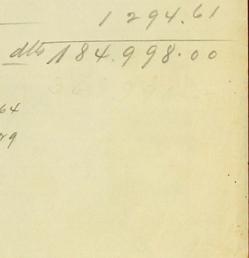 1294.61
dlls 184.998.00
64
29